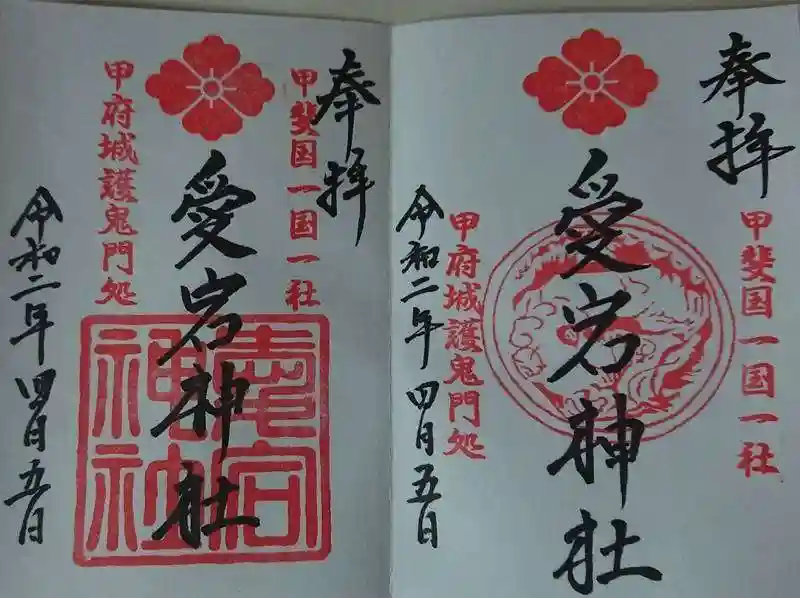 奉拝
甲斐国一国一社
愛宕神社
甲府城護鬼門処
令和二年四月五日
愛宕神社
奉拝
甲斐国一国一社
愛宕神社
甲府城護鬼門処
令和二年四月五日